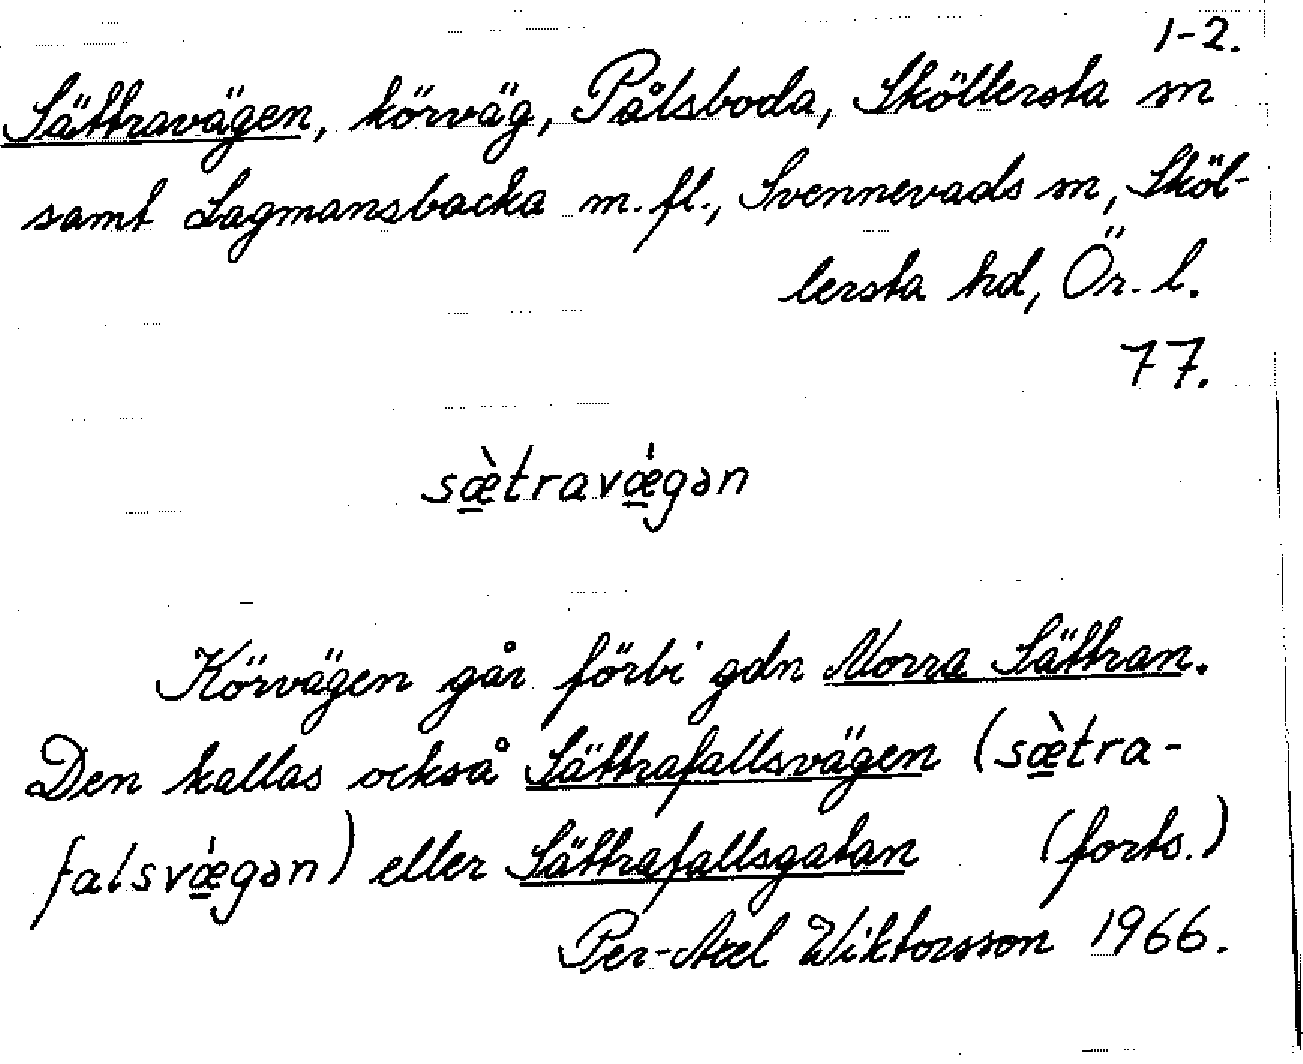 1-2.
Sättravägen, körväg, Pålsboda, Sköllersta sn
samt Lagmansbacka m.fl., Svennevads sn, Sköl-
lersta hd, Ör. l.
77.
sæ̀travǽgən
Körvägen går förbi gdn Norra Sättran.
Den kallas också Sättrafallsvägen (sæ̀tra-
falsvǽgən) eller Sättrafallsgatan (forts.)
Per-Axel Wiktorsson 1966.